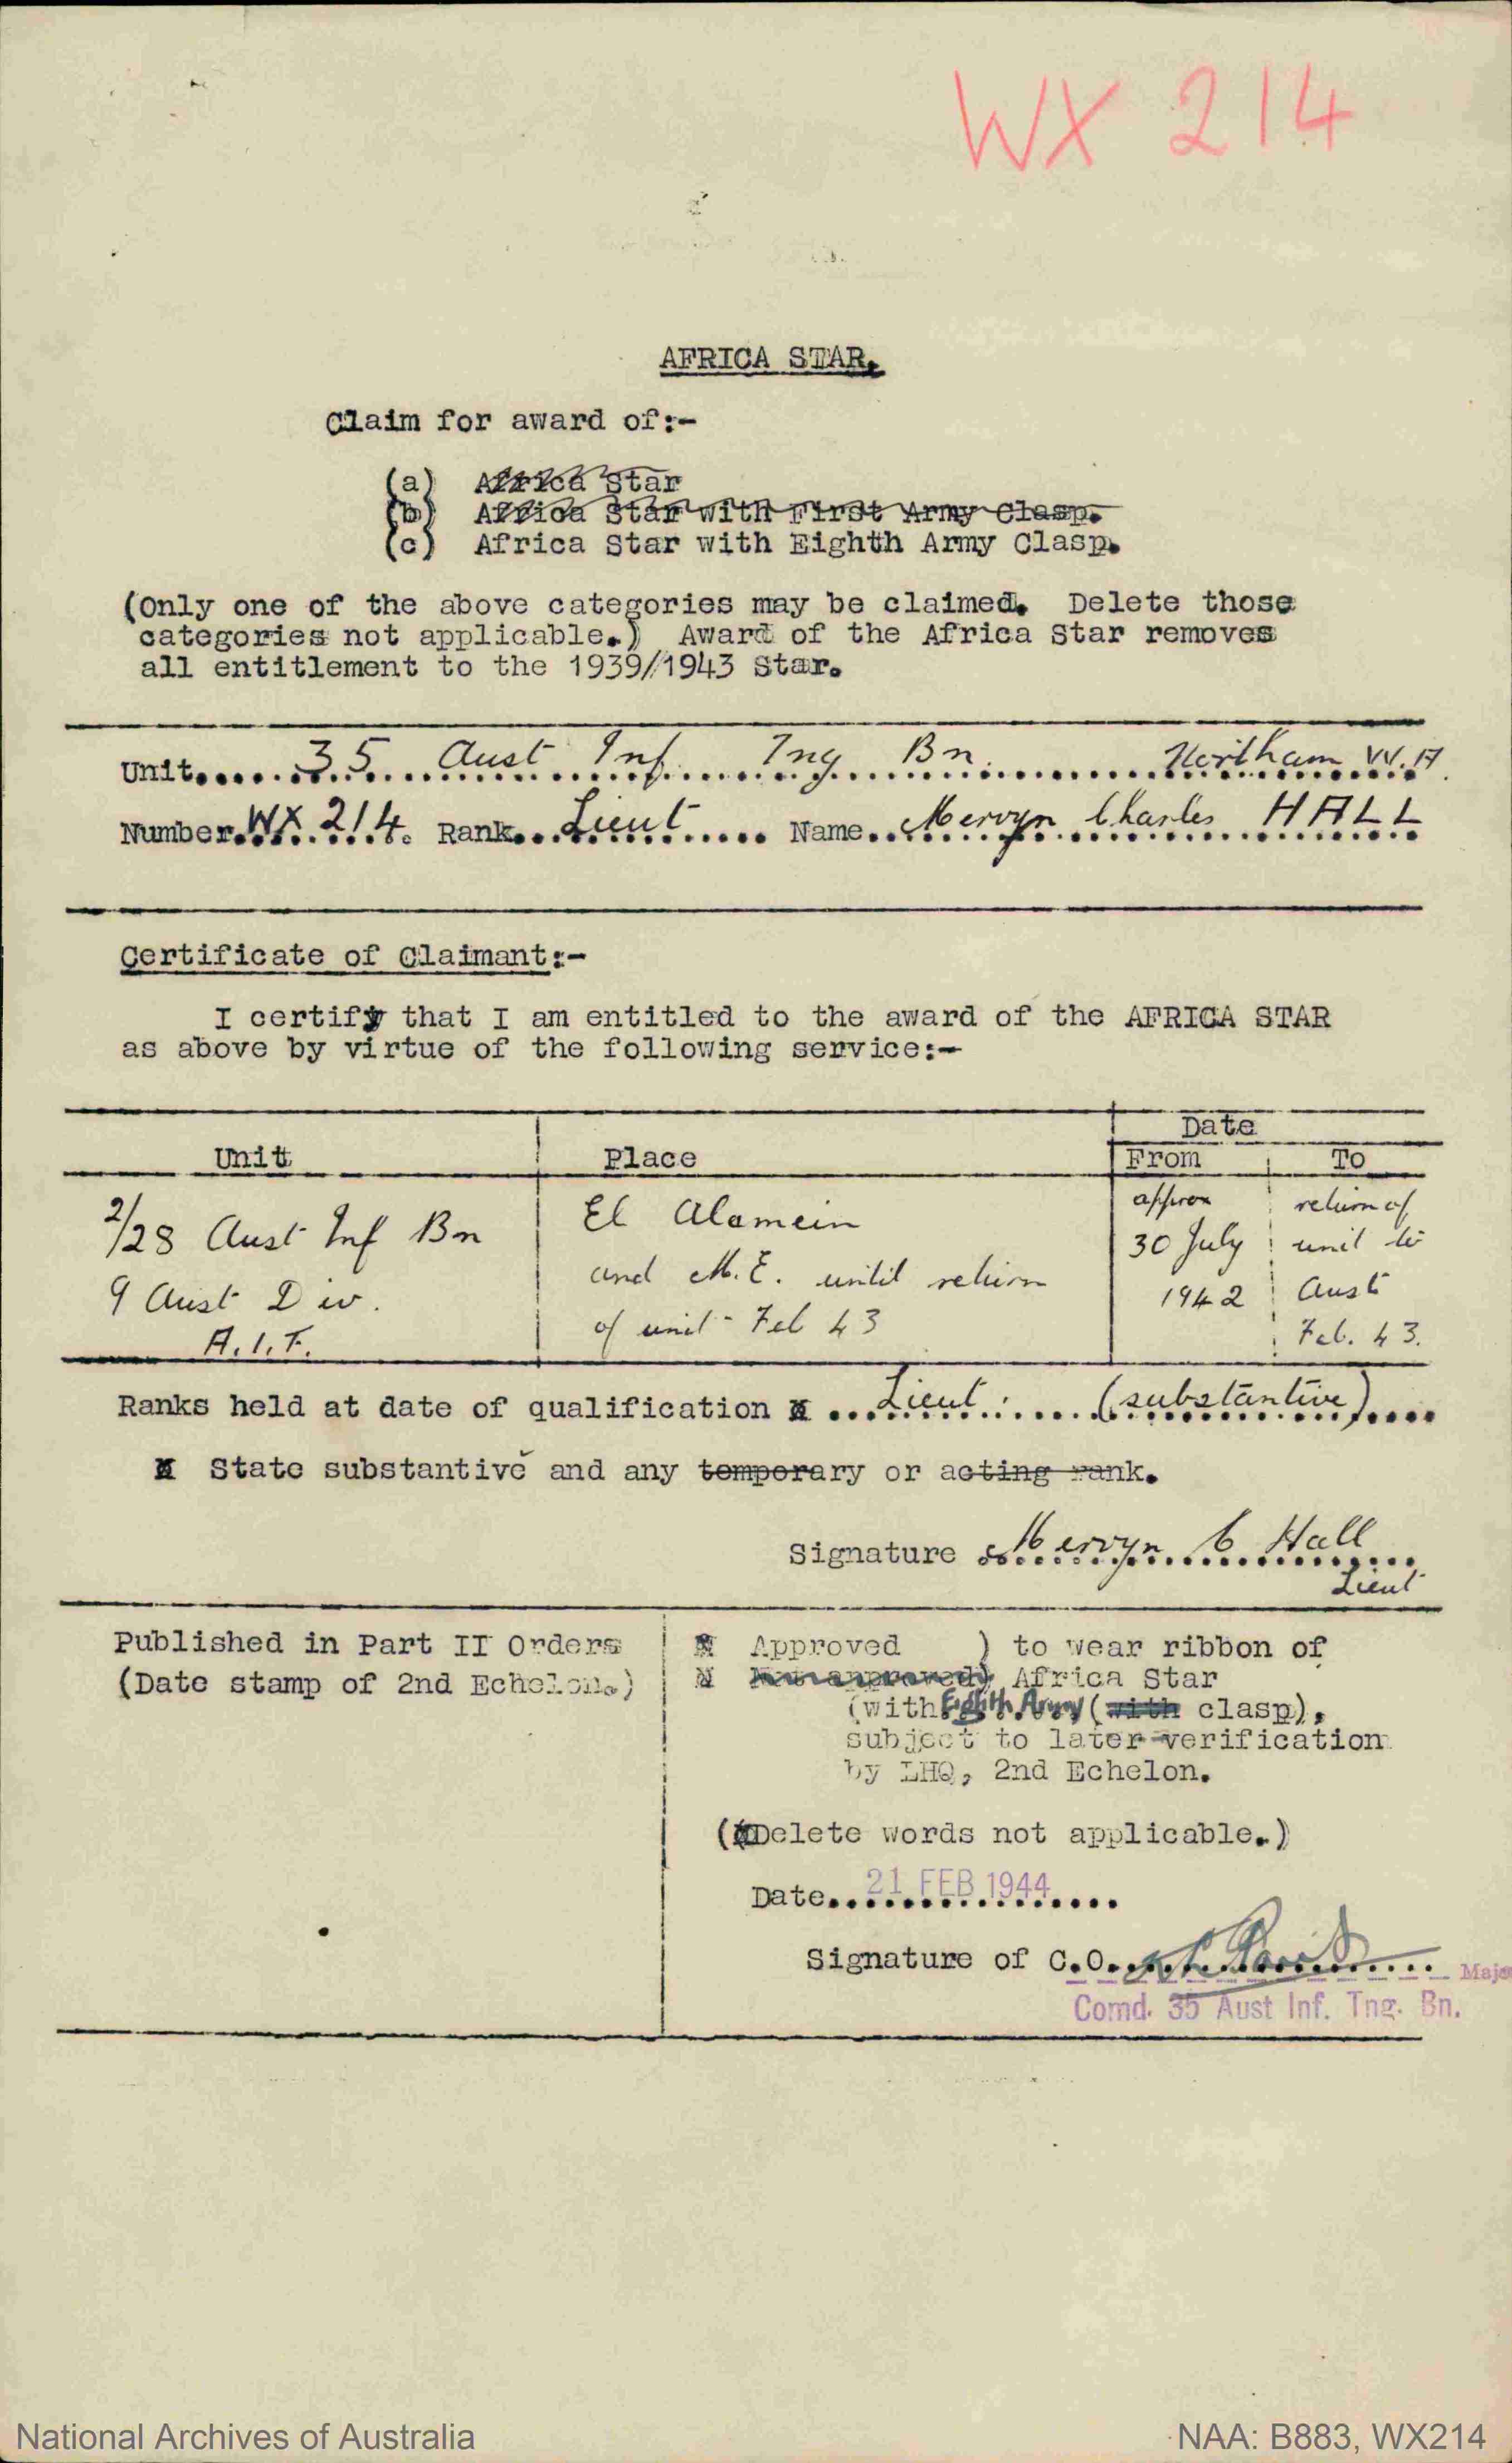 WX 214
AFRICA STAR.
Claim for award of:-
(a) Africa Star
(b) Africa Star with First Army Clasp.
(c) Africa Star with Eighth Army Clasp.
(Only one of the above categories may be claimed. Delete those
categories not applicable.) Award of the Africa Star removes
all entitlement to the 1939/1943 Star.
Unit...... 35 Aust Inf Tng Bn. Northam W.A.
Number. WX 214. Rank... Lieut ..... Name.. Mervyn Charles HALL
Certificate of Claimant:-
I certify that I am entitled to the award of the AFRICA STAR
as above by virtue of the following service:-
Date
Unit Place From To
2/28 Aust Inf Bn El Alamein approx return of
9 Aust Div. and M.E. until return 30 July unit to
A.I.F. of unit - Feb 43 1942 Aust
Feb. 43.
Ranks held at date of qualification x ... Lieut. .... (substantive) ....
x State substantive and any temporary or acting rank.
Signature Mervyn C Hall
Lieut
Published in Part II Orders
(Date stamp of 2nd Echelon.)
x Approved ) to wear ribbon of
x Not approved) Africa Star
(with Eighth Army (with clasp),
subject to later verification
by LHQ, 2nd Echelon.
(xDelete words not applicable.)
Date.. 21 FEB 1944 ....
Signature of C.O. Major
Comd. 35 Aust Inf. Tng. Bn.
National Archives of Australia NAA: B883, WX214